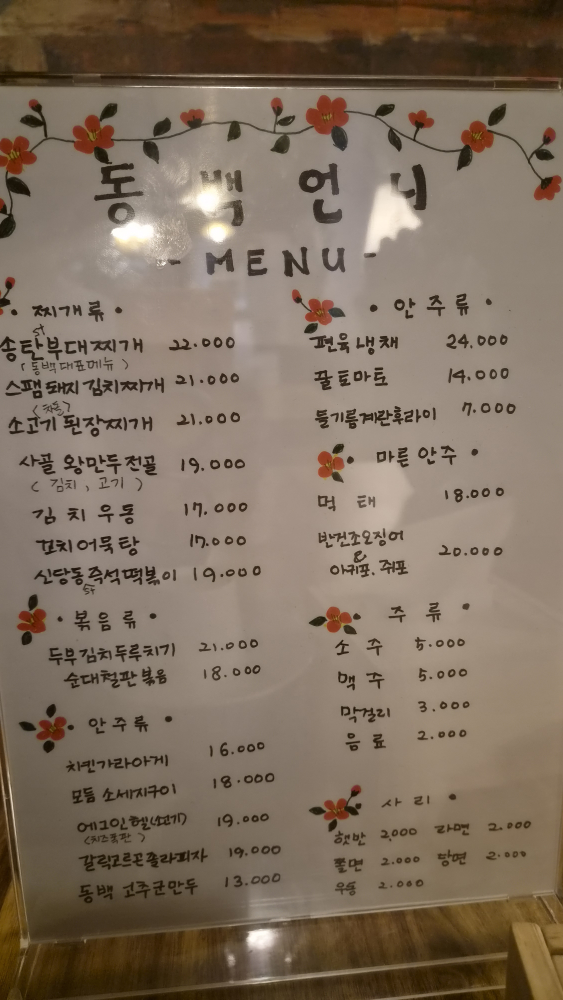 동백언니
- MENU -
• 찌개류 •
송탄부대찌개 22.000
(동백대표메뉴)
스팸돼지김치찌개 21.000
소고기된장찌개 21.000
사골 왕만두전골 19.000
(김치, 고기)
김치우동 17.000
꼬치어묵탕 17.000
신당동즉석떡볶이 19.000
• 볶음류 •
두부김치두루치기 21.000
순대철판볶음 18.000
• 안주류 •
치킨가라아게 16.000
모듬 소세지구이 18.000
에그인헬(소고기) 19.000
갈릭고르곤졸라피자 19.000
동백 고추군만두 13.000
• 안주류 •
편육냉채 24.000
꿀토마토 14.000
들기름계란후라이 7.000
• 마른안주 •
먹태 18.000
반건조오징어
&
아귀포, 쥐포 20.000
• 주류 •
소주 5.000
맥주 5.000
막걸리 3.000
음료 2.000
• 사리 •
햇반 2,000 라면 2.000
쫄면 2.000 당면 2.000
우동 2.000